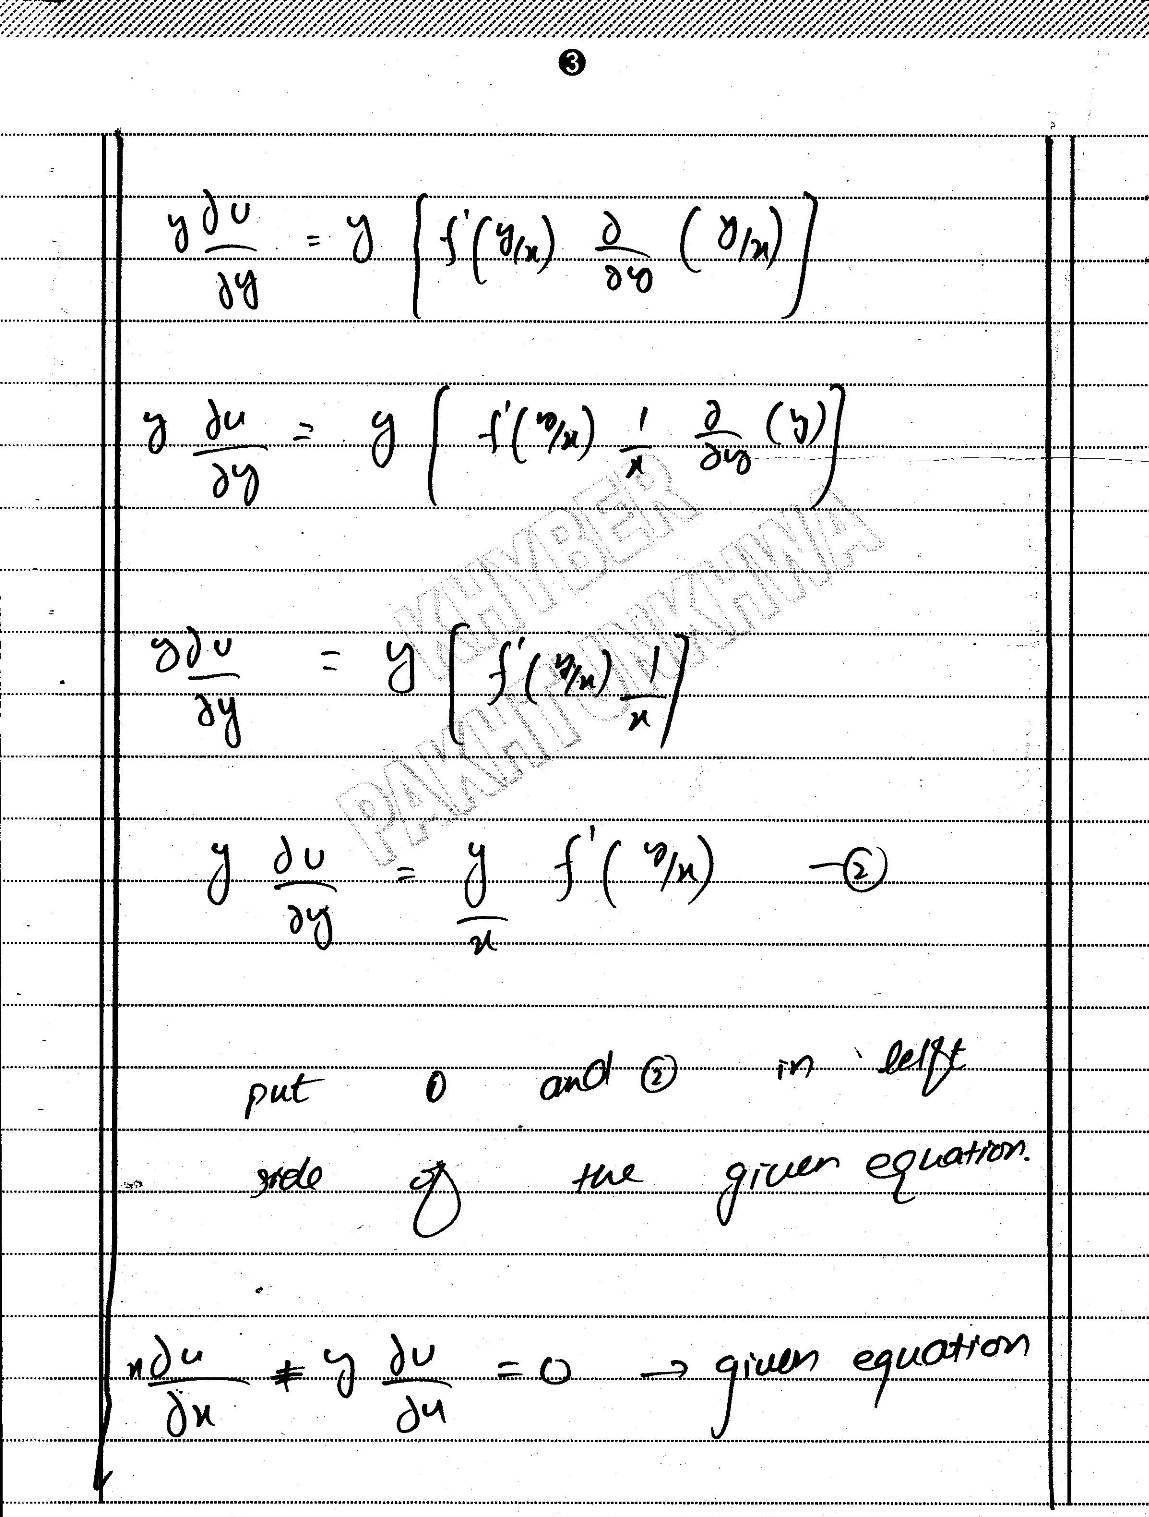 3
y ∂u/∂y = y [ f'(y/x) ∂/∂y (y/x) ]
y ∂u/∂y = y [ f'(y/x) 1/x ∂/∂y (y) ]
KHYBER
PAKHTUNKHWA
y ∂u/∂y = y [ f'(y/x) 1/x ]
y ∂u/∂y = y/x f'(y/x) —②
put ① and ② in lelft
side of the given equation.
x ∂u/∂x + y ∂u/∂u = 0 → given equation